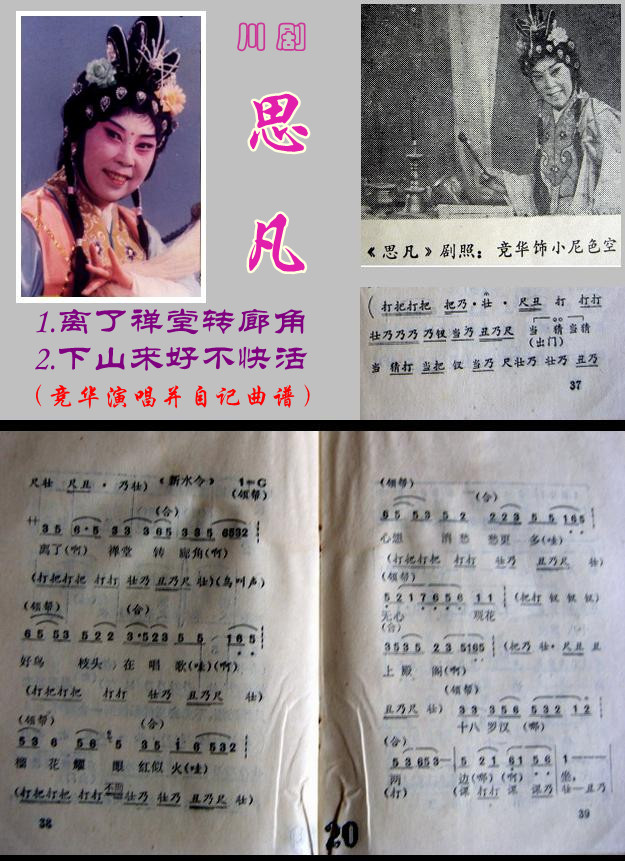 川剧
思
凡
1.离了禅堂转廊角
2.下山来好不快活
（竞华演唱并自记曲谱）
《思凡》剧照：竞华饰小尼色空
（打把打把 把乃·壮·尺丑 打 打打
壮乃乃乃乃仅 当乃 丑乃尺 当 猜当猜
（出门）
当 猜打 当把 仅 当乃 尺壮乃 壮乃 丑乃
37
尺壮 尺丑·乃壮）《新水令》 1=G
（领帮）
（合）
3 5 6·5 3 3 3 6 5 3 3 5 6532
离了(啊) 禅堂 转 廊角(啊)
(打把打把 打打 壮乃 丑乃尺 壮)(鸟叫声)
(领帮) (合)
6 5 5 3 5 2 2 3·5 2 3 5 5 1 6 5
好鸟 枝头 在 唱 歌(哇)(啊)
(打把打把 打打 壮乃 丑乃尺 壮)
(领帮) (合)
5 3 6 5 6 5 3 5 i 6 5 3 2
榴 花 耀 眼 红似 火(哇)
(打把打把 打打 壮乃 壮乃 丑乃尺 壮)
38
(领帮)
(合)
6 5 5 3 5 2 2 2 3 5 5 1 6 5
心想 消愁 愁更 多(哇)
(打把打把 打打 壮乃 丑乃尺 壮)
(领帮)
5 2 1 7 6 5 6 1 1 (把打 仅 仅 仅)
无心 观花
(合)
3 5 3 5 2 3 5165 (把乃 壮·尺丑 丑
上 殿 阁(啊)
(领帮)
丑乃尺 壮) 3 3 3 5 6 5 3 2 1 2
十八 罗汉 (哪)
(合)
5 3 6 5 3 5 2 1 6 1 5 6 1
两 边(哪) (啊) 坐，
(打) (课 打打 课 课乃 壮—丑乃
39
20